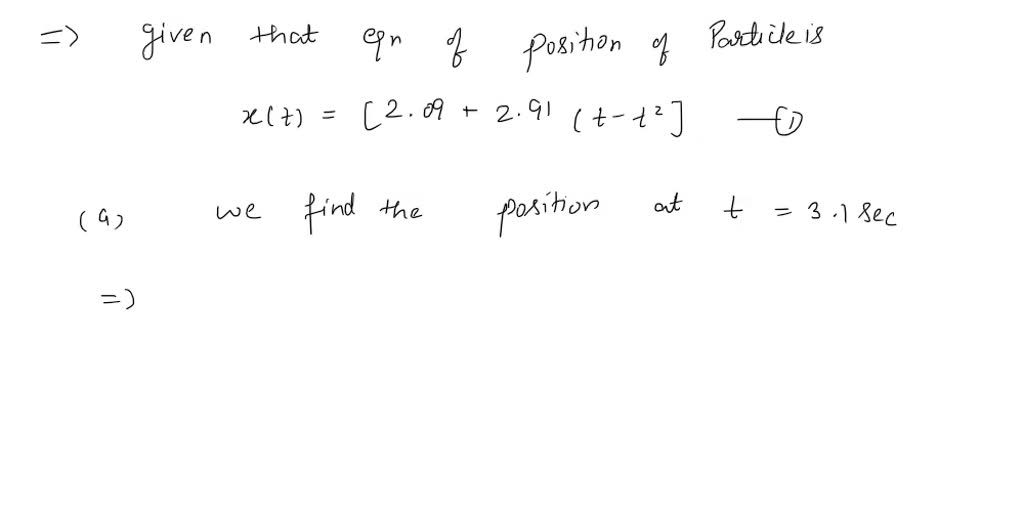 => given that eqn of position of Particle is
x(t) = [2.09 + 2.91 (t - t²] —①
(a) we find the position at t = 3.1 sec
=>